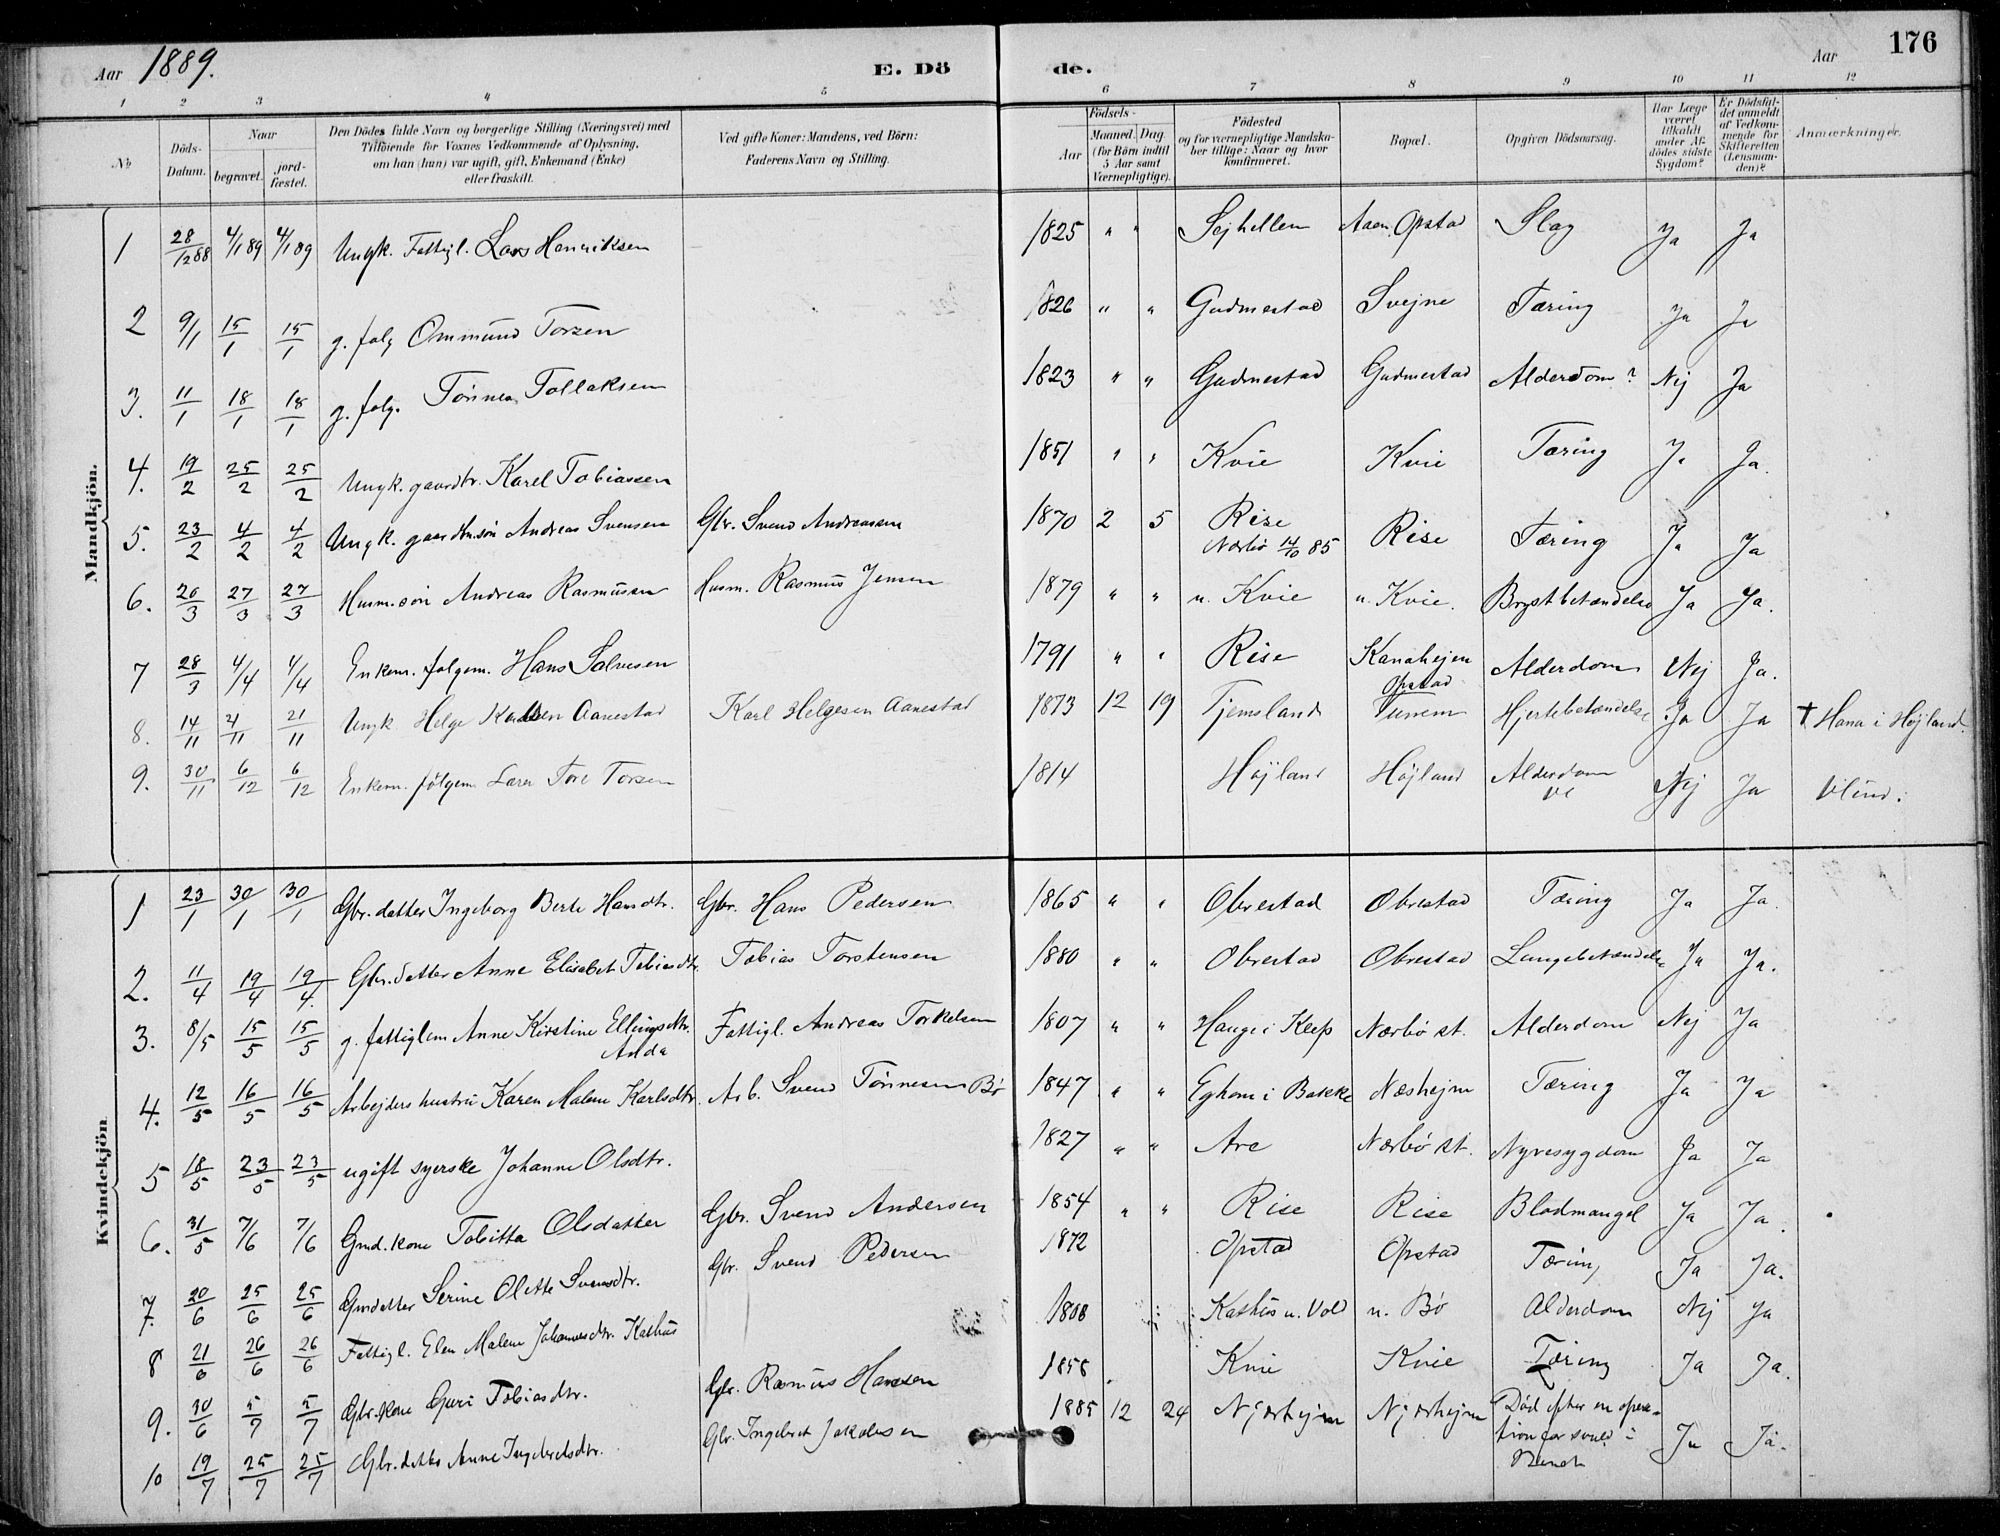 Aar 1889. E. Dö de. Aar 176
1 2 3 4 5 6 7 8 9 10 11 12
No
Döds-Datum.
Naar
begravet. jordfæstet.
Den Dödes fulde Navn og borgerlige Stilling (Næringsvei) med
Tilföiende for Voxnes Vedkommende af Oplysning,
om han (hun) var ugift, gift, Enkemand (Enke)
eller fraskilt.
Ved gifte Koner: Mandens, ved Börn:
Faderens Navn og Stilling.
Födsels-
Aar Maaned. Dag.
(for Börn indtil
5 Aar samt
Værnepligtige).
Födested
og for værnepligtige Mandska-
ber tillige: Naar og hvor
konfirmeret.
Bopæl.
Opgiven Dödsaarsag.
Har Læge
været
tilkaldt
under Af-
dödes sidste
Sygdom?
Er Dödsfal-
det anmeldt
af Vedkom-
mende for
Skifteretten
(Lensman-
den)?
Anmærkninger.
Mandkjön.
1 28/12 88 4/1 89 4/1 89 Ungk. Fattigl. Lars Henriksen 1825 " " Sejhellem Aaen, Opstad Slag Ja Ja
2 9/1 15/1 15/1 g. folg Ommund Torsen 1826 " " Gudmestad Svejne Tæring Ja Ja
3. 11/1 18/1 18/1 g. folg. Tönnes Tollaksen 1823 " " Gudmestad Gudmestad Alderdom? Nej Ja
4. 19/2 25/2 25/2 Ungk. gaardbr. Karel Tobiassen 1851 " " Kvie Kvie Tæring Ja Ja.
5. 23/2 4/2 4/2 Ungk. gaardbr.sön Andreas Svensen Gbr. Svend Andreassen 1870 2 5 Rise
Nærbö 14/10 85 Rise Tæring Ja Ja
6. 20/3 27/3 27/3 Husm.sön Andreas Rasmusen Husm. Rasmus Jensen 1879 " " u. Kvie u. Kvie. Brystbetændelse Ja Ja.
7 28/3 4/4 4/4 Enkem. folgem. Hans Salvesen 1791 " " Rise Kanahejen
Opstad Alderdom Nej Ja.
8. 14/11 21/11 21/11 Ungk. Helge Karlsen Aanestad Karl Helgesen Aanestad 1873 12 19 Tjemsland Tunem Hjertebetændelse Ja Ja † Hana i Höjland.
9. 30/11 6/12 6/12 Enkem. fölgem Lærer Tore Torsen 1814 Höjland Höjland Alderdom Nej Ja blind.
Kvindekjön
1 23/1 30/1 30/1 Gbr. datter Ingeborg Berte Hansdtr. Gbr. Hans Pedersen 1865 " " Obrestad Obrestad Tæring Ja Ja.
2. 11/4 19/4 19/4. Gbr. datter Anne Elisabet Tobiasdtr. Tobias Torstensen 1880 " " Obrestad Obrestad Lungebetændelse Ja Ja.
3. 8/5 15/5 15/5 g. fattiglem Anne Kirstine Ellingsdtr.
Anda Fattigl. Andreas Torkelsen 1807 " " Hauge i Klep Nærbö st. Alderdom Nej Ja
4. 12/5 16/5 16/5 Arbejders hustru Karen Malene Karlsdtr. Arb. Svend Tönnesen Bö 1847 " " Eghom i Bakke Næshejm Tæring Ja Ja
5 18/5 23/5 23/5 ugift syerske Johanne Olsdtr. 1827 " " Are Nærbö st. Nyresygdom Ja Ja
6. 31/5 7/6 7/6 Gmd. kone Tobitta Olsdatter Gbr. Svend Andersen 1854 " " Rise Rise Blodmangel Ja Ja.
7. 20/6 25/6 25/6 Gmdatter Serine Olette Svensdtr. Gbr. Svend Pedersen 1872 Opstad Opstad Tæring Ja Ja.
8 21/6 26/6 26/6 Fattigl. Elen Malene Johannesdtr. Kashus 1808 Kashus u. Vold u. Bö Alderdom Nej Ja
9. 30/6 5/7 5/7 Gbr. kone Guri Tobiasdtr. Gbr. Rasmus Hansen 1858 Kvie Kvie Tæring Ja Ja.
10 19/7 25/7 25/7 Gbr. datter Anne Ingebretsdtr. Gbr. Ingebret Jakobsen 1885 12 24 Njærhejm Njærhejm Död efter en opera-
tion for svuld i Ja Ja.